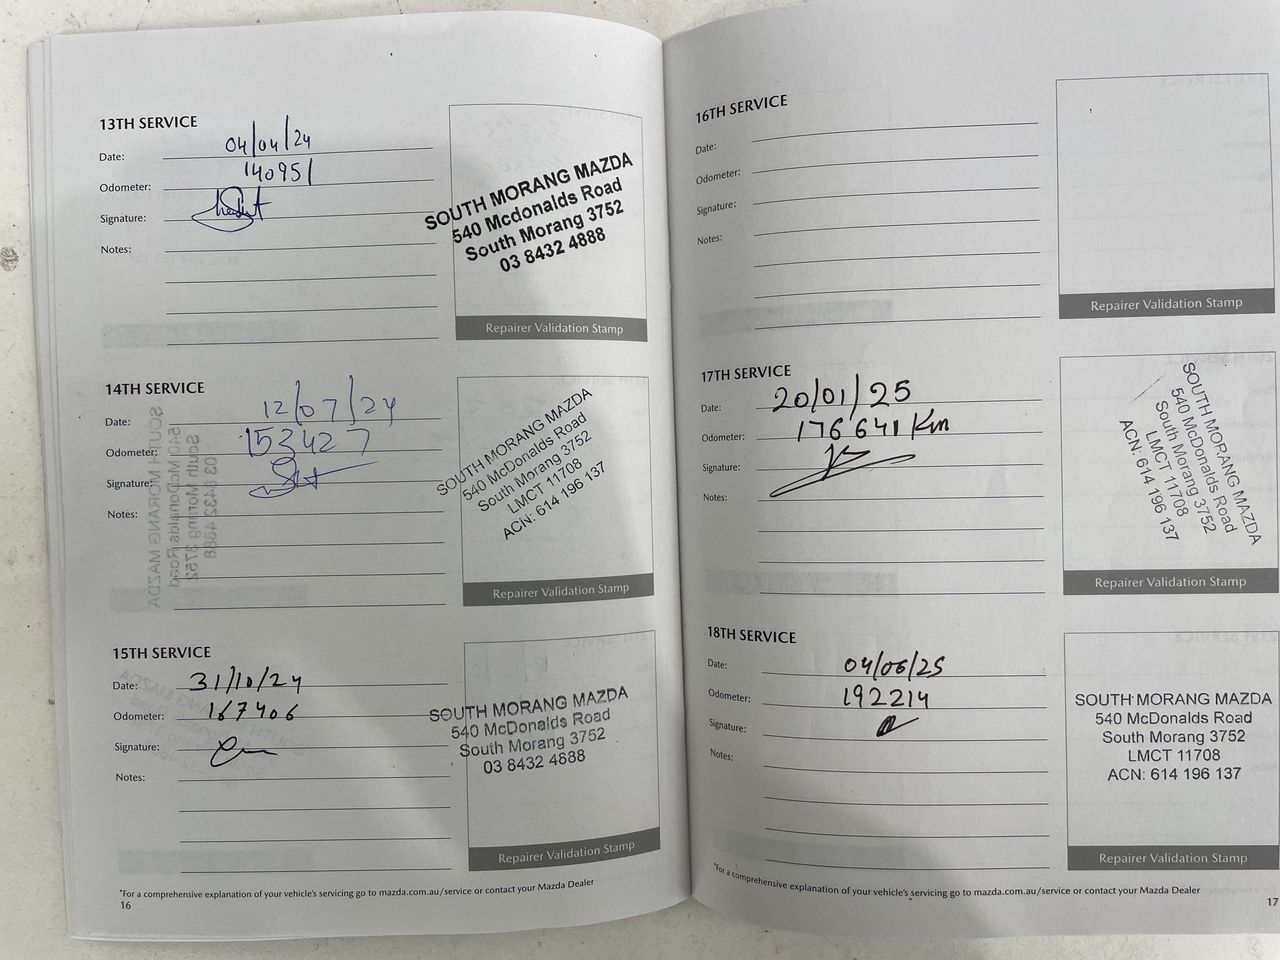 13TH SERVICE
Date: 04/04/24
Odometer: 140951
Signature:
Notes:
SOUTH MORANG MAZDA
540 Mcdonalds Road
South Morang 3752
03 8432 4888
Repairer Validation Stamp
14TH SERVICE
Date: 12/07/24
Odometer: 153427
Signature:
Notes:
SOUTH MORANG MAZDA
540 McDonalds Road
South Morang 3752
LMCT 11708
ACN: 614 196 137
Repairer Validation Stamp
SOUTH MORANG MAZDA
540 McDonalds Road
South Morang 3752
03 8432 4888
15TH SERVICE
Date: 31/10/24
Odometer: 167406
Signature:
Notes:
SOUTH MORANG MAZDA
540 McDonalds Road
South Morang 3752
03 8432 4888
Repairer Validation Stamp
*For a comprehensive explanation of your vehicle's servicing go to mazda.com.au/service or contact your Mazda Dealer
16
16TH SERVICE
Date:
Odometer:
Signature:
Notes:
Repairer Validation Stamp
17TH SERVICE
Date: 20/01/25
Odometer: 176641 Km
Signature:
Notes:
SOUTH MORANG MAZDA
540 McDonalds Road
South Morang 3752
LMCT 11708
ACN: 614 196 137
Repairer Validation Stamp
18TH SERVICE
Date: 04/06/25
Odometer: 192214
Signature:
Notes:
SOUTH MORANG MAZDA
540 McDonalds Road
South Morang 3752
LMCT 11708
ACN: 614 196 137
Repairer Validation Stamp
*For a comprehensive explanation of your vehicle's servicing go to mazda.com.au/service or contact your Mazda Dealer
17